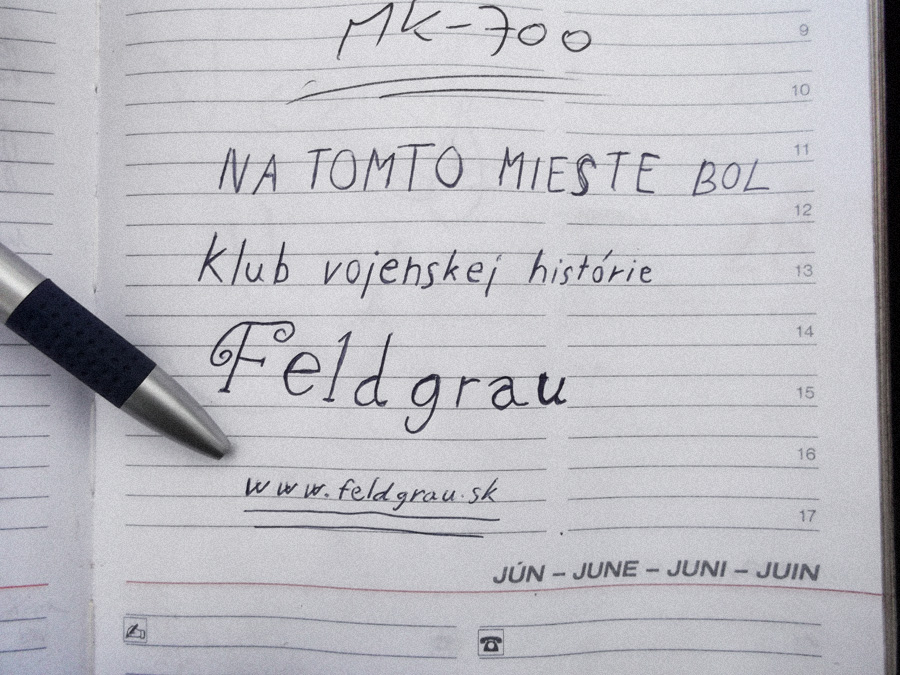 MK-700
9
10
11
NA TOMTO MIESTE BOL
12
Klub vojenskej histórie
13
14
Feldgrau
15
16
www.feldgrau.sk
17
JÚN – JUNE – JUNI – JUIN